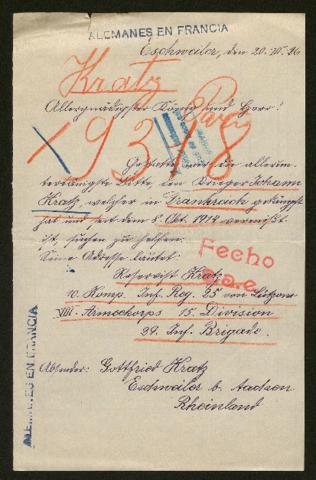 ALEMANES EN FRANCIA
Eschweiler, den 20. VI. 16
Kratz
Allergnädigster König und Herr!
19378
Gestatte mir die allerun-
tertänigste Bitte, den Krieger Johann
Kratz, welcher in Frankreich gekämpft
hat und seit dem 8. Okt. 1914 vermißt
ist, suchen zu helfen.
Seine Adresse lautet:
Fecho
Reservist Kratz
10. Komp. Inf. Reg. 25 von Lützow
VIII. Armeekorps 15. Division
29. Inf. Brigade.
ALEMANES EN FRANCIA
Absender: Gottfried Kratz
Eschweiler b. Aachen
Rheinland